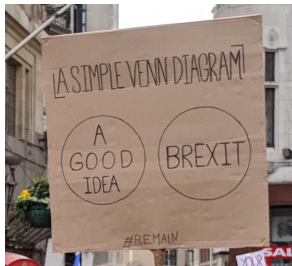 A SIMPLE VENN DIAGRAM
A
GOOD
IDEA
BREXIT
#REMAIN
SAL